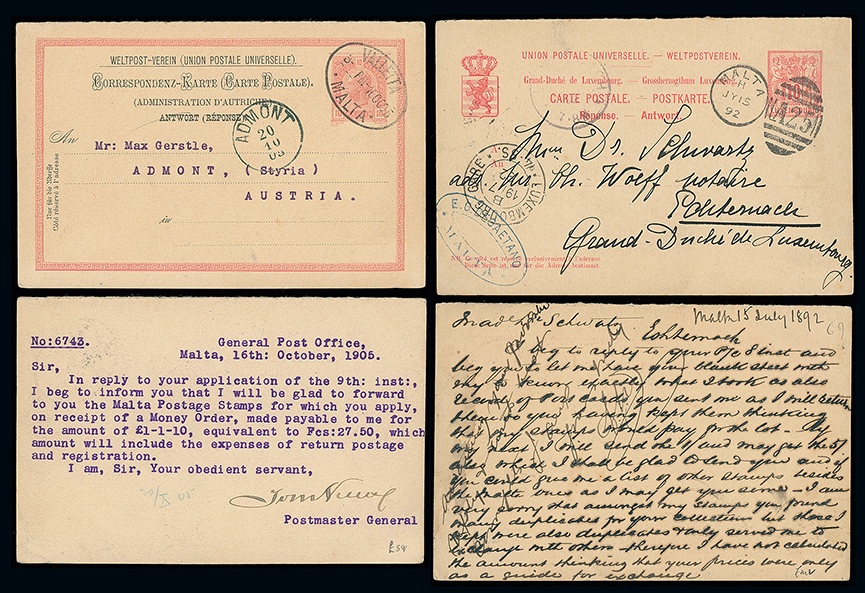 WELTPOST-VEREIN (UNION POSTALE UNIVERSELLE).
CORRESPONDENZ-KARTE (CARTE POSTALE).
(ADMINISTRATION D'AUTRICHE)
ANTWORT (RÉPONSE)
VALLETTA
MALTA
ADMONT
20
10
05
An
Mr: Max Gerstle,
ADMONT, (Styria)
AUSTRIA.
in
Nur für die Adresse
Côté réservé à l'adresse
UNION POSTALE UNIVERSELLE. — WELTPOSTVEREIN.
Grand-Duché de Luxembourg. — Grossherzogthum Luxemburg.
CARTE POSTALE. — POSTKARTE.
Réponse. — Antwort.
MALTA
H
JY 15
92
A25
Dr. Schwartz
Ch. Wolff notaire
Echternach
Grand-Duché de Luxembourg.
No:6743.
General Post Office,
Malta, 16th: October, 1905.
Sir,
In reply to your application of the 9th: inst:,
I beg to inform you that I will be glad to forward
to you the Malta Postage Stamps for which you apply,
on receipt of a Money Order, made payable to me for
the amount of £1-1-10, equivalent to Fcs:27.50, which
amount will include the expenses of return postage
and registration.
I am, Sir, Your obedient servant,
Postmaster General
Malta 15 July 1892
69
Echternach
beg to reply to your P/c 8 inst and
beg you to let me have your blank sheet with
exactly what I took as also
Post cards you sent me as I will return
them so you having kept them thinking
that my stamps would pay for the lot. By
my next I will send the 1/ and may get the 5/
also which I shall be glad to send you and if
you could give me a list of other stamps besides
the Malta ones as I may get you some — I am
very sorry that amongst my stamps you found
many duplicates for your collection but those I
were also duplicates & only served me to
exchange with others therefore I have not calculated
the amount thinking that your prices were only
as a guide for exchange